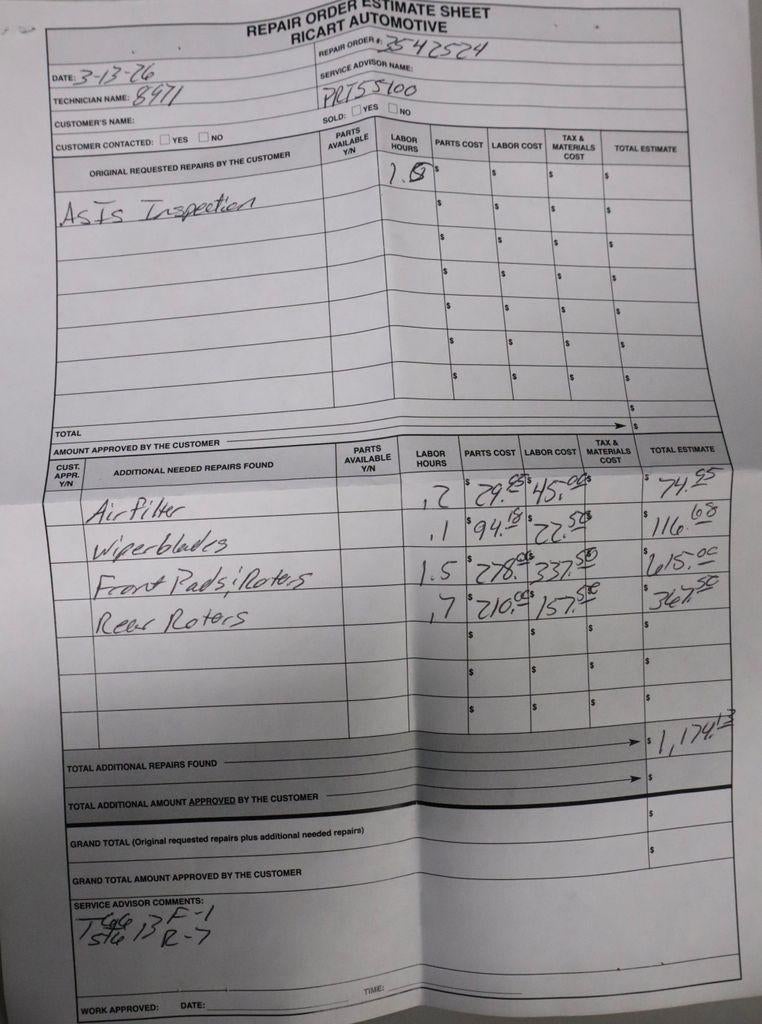 REPAIR ORDER ESTIMATE SHEET
RICART AUTOMOTIVE
DATE: 3-13-26 REPAIR ORDER #: 3542524
TECHNICIAN NAME: 8971 SERVICE ADVISOR NAME:
CUSTOMER'S NAME: PRTS 5100
CUSTOMER CONTACTED: YES NO SOLD: YES NO
ORIGINAL REQUESTED REPAIRS BY THE CUSTOMER PARTS AVAILABLE Y/N LABOR HOURS PARTS COST LABOR COST TAX & MATERIALS COST TOTAL ESTIMATE
As Is Inspection $ $ $ $
$ $ $ $
$ $ $ $
$ $ $ $
$ $ $ $
$ $ $ $
$ $ $ $
TOTAL $
AMOUNT APPROVED BY THE CUSTOMER $
CUST. APPR. Y/N ADDITIONAL NEEDED REPAIRS FOUND PARTS AVAILABLE Y/N LABOR HOURS PARTS COST LABOR COST TAX & MATERIALS COST TOTAL ESTIMATE
Air filter .2 $29.95 $45.00 $ $74.95
Wiperblades .1 $94.18 $22.50 $ $116.68
Front Pads; Roters 1.5 $278.00 $337.50 $ $615.00
Rear Roters .7 $210.00 $157.50 $ $367.50
$ $ $ $
$ $ $ $
$ $ $ $
TOTAL ADDITIONAL REPAIRS FOUND $1,174.13
TOTAL ADDITIONAL AMOUNT APPROVED BY THE CUSTOMER $
GRAND TOTAL (Original requested repairs plus additional needed repairs) $
GRAND TOTAL AMOUNT APPROVED BY THE CUSTOMER $
SERVICE ADVISOR COMMENTS:
13 F-1
R-7
WORK APPROVED: DATE: TIME: